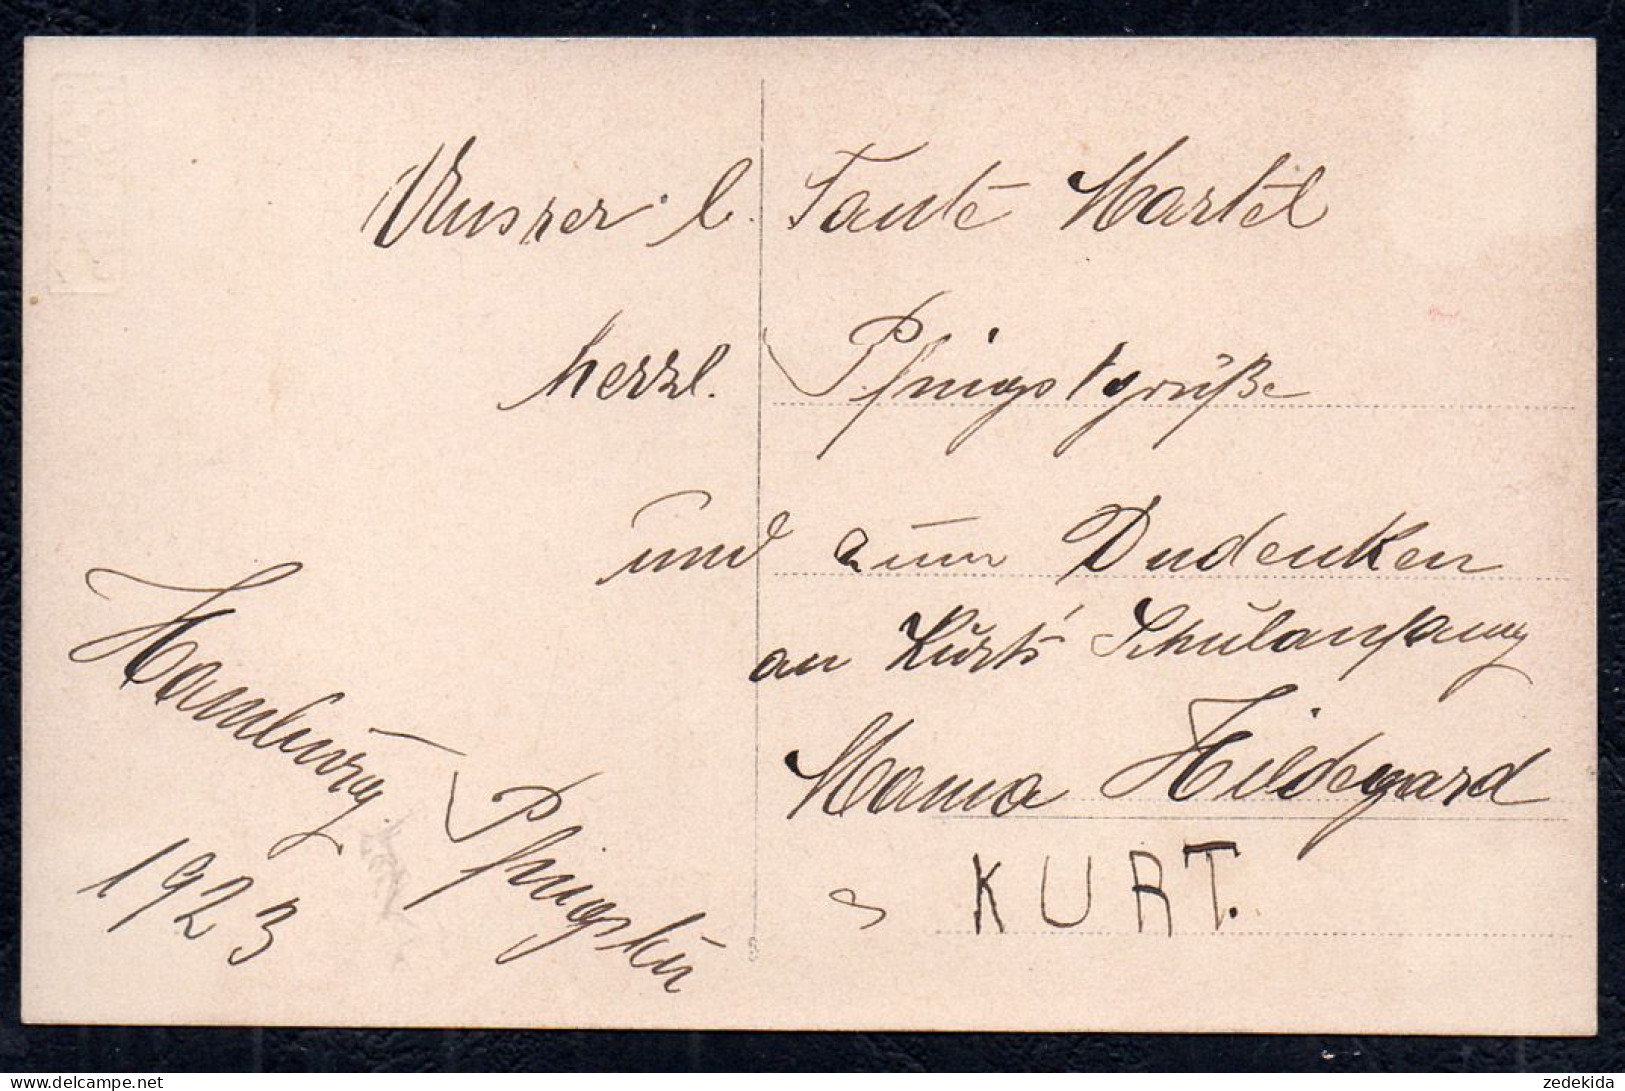 Unsrer l. Tante Martel
herzl. Pfingstgrüße
und zum Andenken
an Kurts' Schulanfang
Mama Hildegard
KURT.
Hamburg
Pfingsten
1923
zedekida